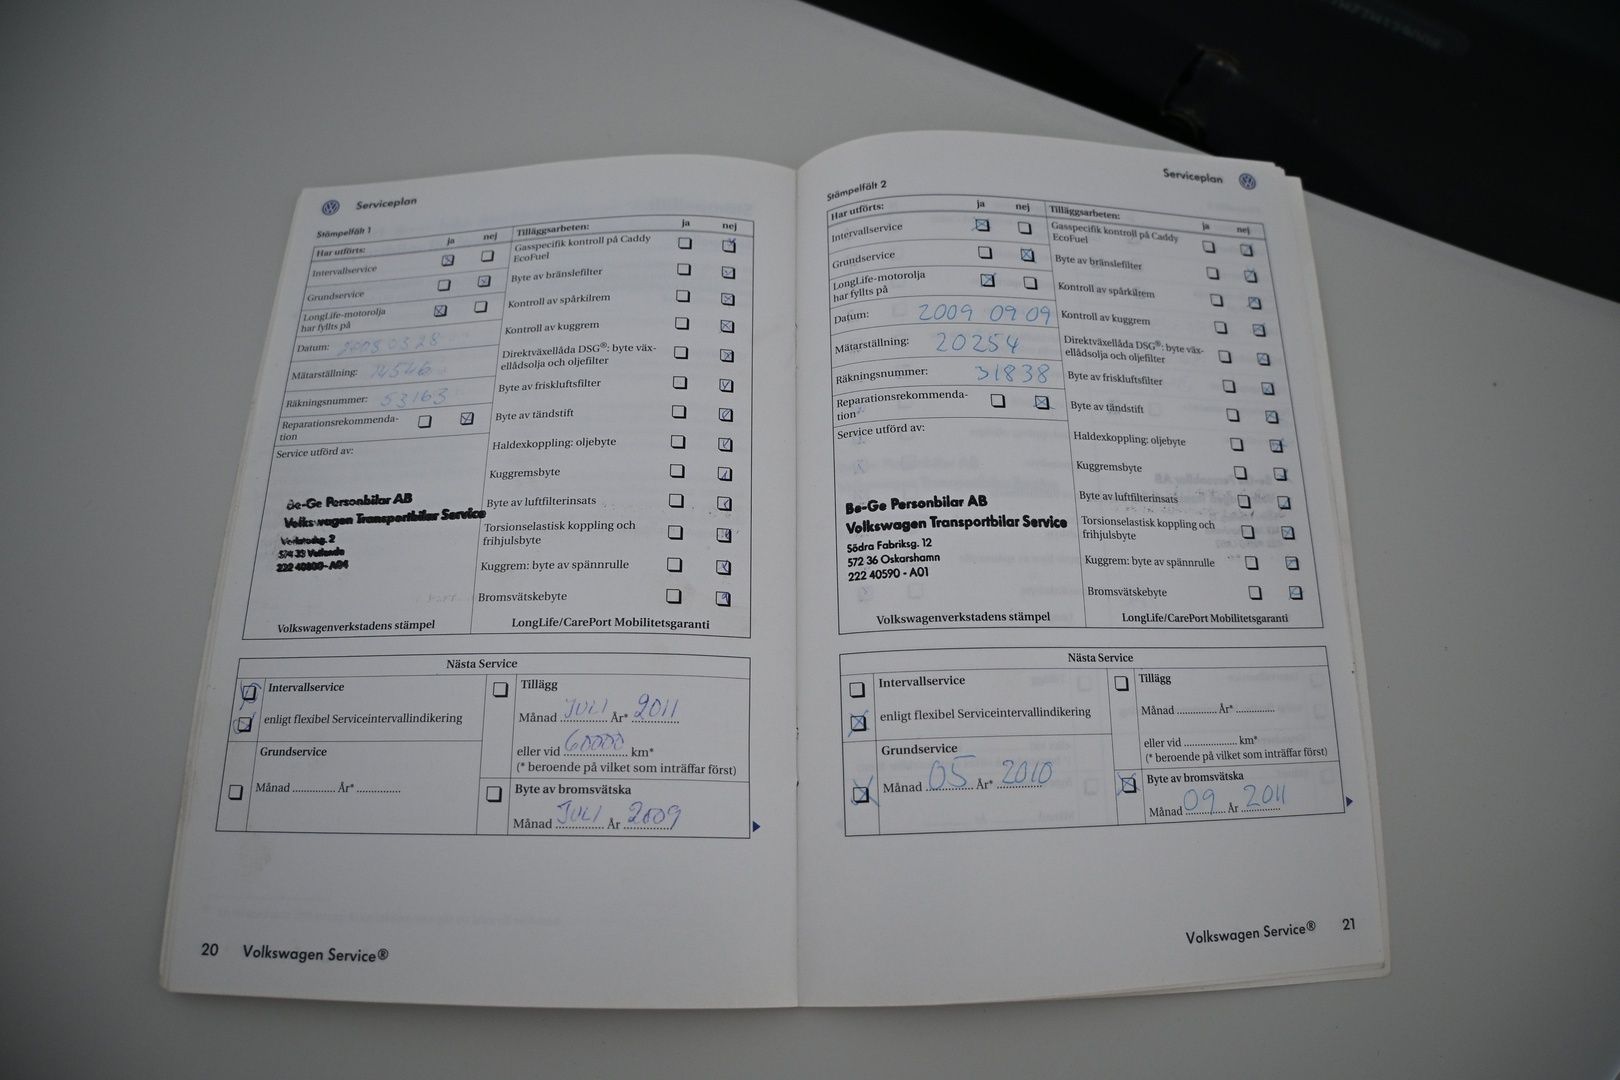 Serviceplan
Stämpelfält 1
Har utförts: ja nej
Intervallservice
Grundservice
LongLife-motorolja
har fyllts på
Datum: 03 28
Mätarställning: 14546
Räkningsnummer: 53163
Reparationsrekommenda-
tion
Service utförd av:
Be-Ge Personbilar AB
Volkswagen Transportbilar Service
Volkswagenverkstadens stämpel
Tilläggsarbeten: ja nej
Gasspecifik kontroll på Caddy
EcoFuel
Byte av bränslefilter
Kontroll av spårkilrem
Kontroll av kuggrem
Direktväxellåda DSG®: byte väx-
ellådsolja och oljefilter
Byte av friskluftsfilter
Byte av tändstift
Haldexkoppling: oljebyte
Kuggremsbyte
Byte av luftfilterinsats
Torsionselastisk koppling och
frihjulsbyte
Kuggrem: byte av spännrulle
Bromsvätskebyte
LongLife/CarePort Mobilitetsgaranti
Nästa Service
Intervallservice
enligt flexibel Serviceintervallindikering
Grundservice
Månad .............. År* ..............
Tillägg
Månad JULI År* 2011
eller vid 60000 km*
(* beroende på vilket som inträffar först)
Byte av bromsvätska
Månad JULI År 2009
20 Volkswagen Service®
Serviceplan
Stämpelfält 2
Har utförts: ja nej
Intervallservice
Grundservice
LongLife-motorolja
har fyllts på
Datum: 2009 09 09
Mätarställning: 20254
Räkningsnummer: 31838
Reparationsrekommenda-
tion
Service utförd av:
Be-Ge Personbilar AB
Volkswagen Transportbilar Service
Södra Fabriksg. 12
572 36 Oskarshamn
222 40590 - A01
Volkswagenverkstadens stämpel
Tilläggsarbeten: ja nej
Gasspecifik kontroll på Caddy
EcoFuel
Byte av bränslefilter
Kontroll av spårkilrem
Kontroll av kuggrem
Direktväxellåda DSG®: byte väx-
ellådsolja och oljefilter
Byte av friskluftsfilter
Byte av tändstift
Haldexkoppling: oljebyte
Kuggremsbyte
Byte av luftfilterinsats
Torsionselastisk koppling och
frihjulsbyte
Kuggrem: byte av spännrulle
Bromsvätskebyte
LongLife/CarePort Mobilitetsgaranti
Nästa Service
Intervallservice
enligt flexibel Serviceintervallindikering
Grundservice
Månad 05 År* 2010
Tillägg
Månad .............. År* ..............
eller vid .................... km*
(* beroende på vilket som inträffar först)
Byte av bromsvätska
Månad 09 År 2011
Volkswagen Service® 21